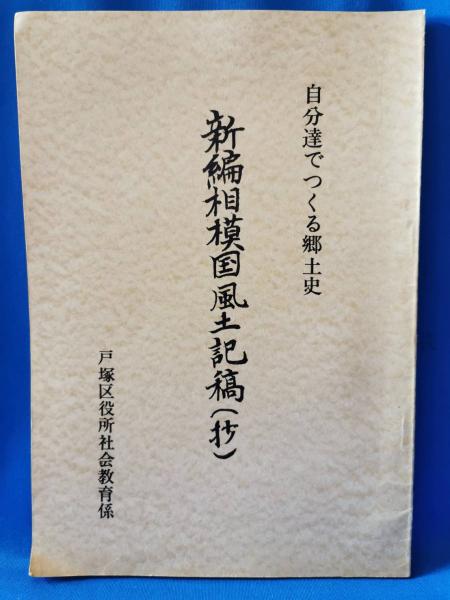 自分達でつくる郷土史
新編相模国風土記稿(抄)
戸塚区役所社会教育係